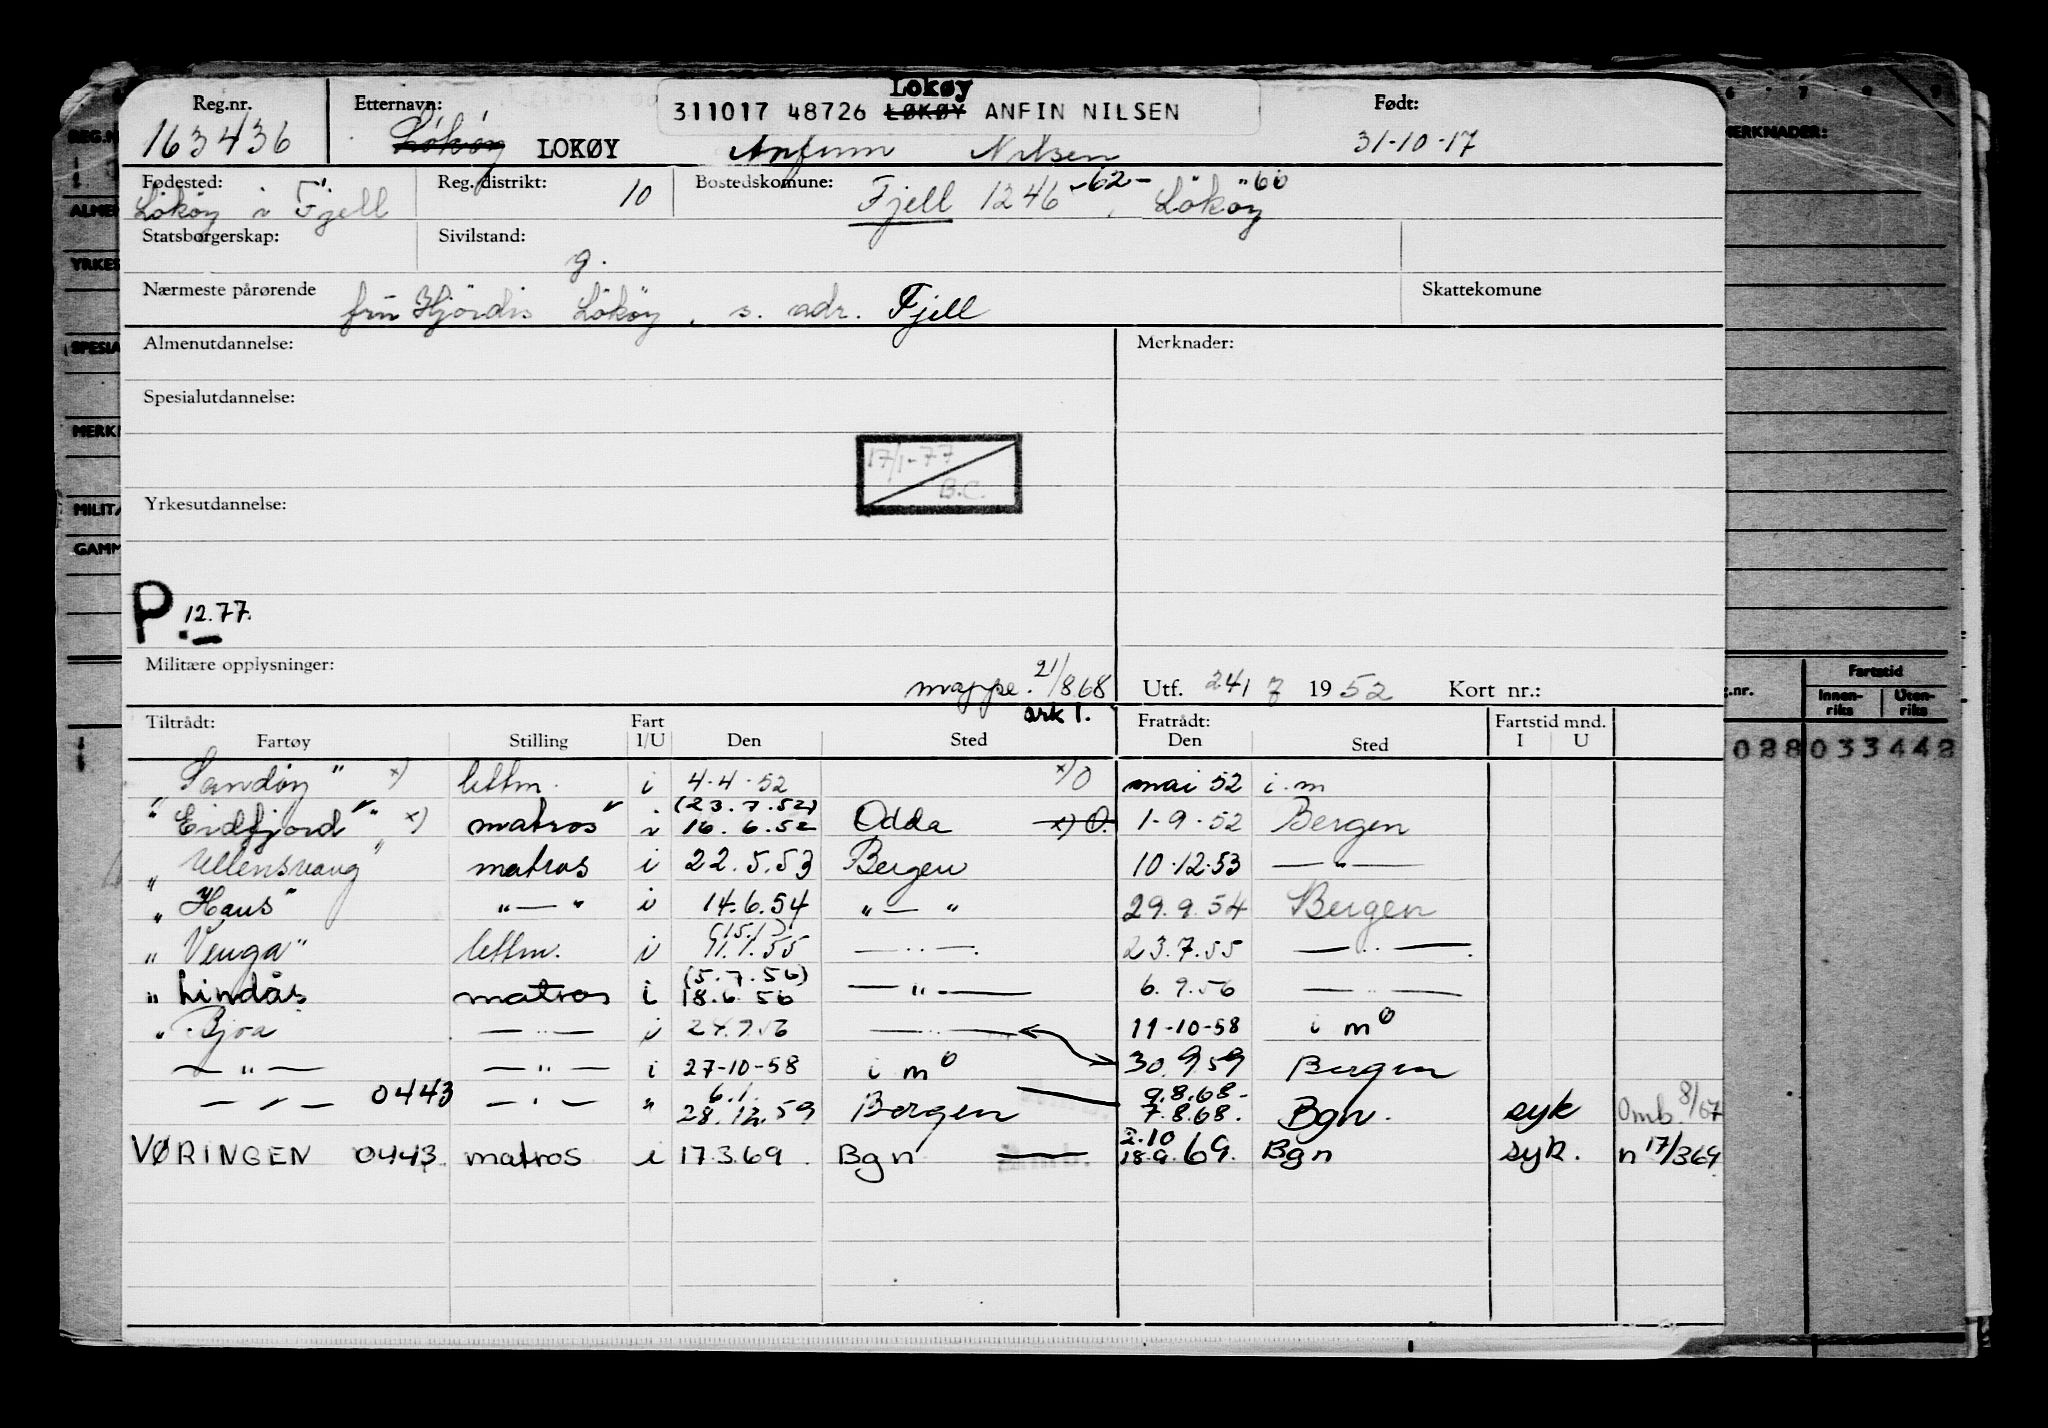 Lokøy
Reg.nr. Etternavn: 311017 48726 LØKØY ANFIN NILSEN Født:
163436 Lököy LOKØY Anfinn Nilsen 31-10-17
Fødested: Reg. distrikt: 10 Bostedskomune: Fjell 1246 -62- , Lököy "60
Lököy i Fjell
Statsborgerskap: Sivilstand: g.
Nærmeste pårørende fru Hjördis Lököy, s. adr. Fjell Skattekomune
Almenutdannelse: Merknader:
Spesialutdannelse:
17/1-77
B.C.
Yrkesutdannelse:
P 12.77.
Militære opplysninger: mappe. 21/868 Utf. 24/ 7 1952 Kort nr.:
ark 1.
Tiltrådt: Fart Fratrådt: Fartstid mnd.
Fartøy Stilling I/U Den Sted Den Sted I U
"Sandöy" x) lettm. i 4-4-52 x) O mai 52 i.m
(23.7.52)
"Eidfjord" x) matros i 16.6.52 Odda x) O. 1-9-52 Bergen
"Ullensvang" matros i 22.5.53 Bergen 10-12-53 — " —
"Haus" " — " i 14.6.54 " — " 29.9.54 Bergen
"Venga" lettm. i 11.1.55 — " — 23.7.55 — " —
(5.7.56)
"Lindås matros i 18.6.56 — " — 6.9.56 — " —
"Bjoa — " — i 24.9.56 — " — 11-10-58 i mo
— " — — " — i 27-10-58 i mo 30.9.59 Bergen
6.1. 9.8.68-
— " — 0443 — " — " 28.12.59 Bergen 7.8.68. Bgn. syk Omb. 8/67
2.10
VØRINGEN 0443 matros i 17.3.69. Bgn 18.9.69. Bgn syk. n 17/369
REG.N
ALMEN
YRKES
SPESIA
MERK
MILITÆ
GAMM
MERKNADER:
g.nr. Fartstid
Innen-riks Uten-riks
028033442